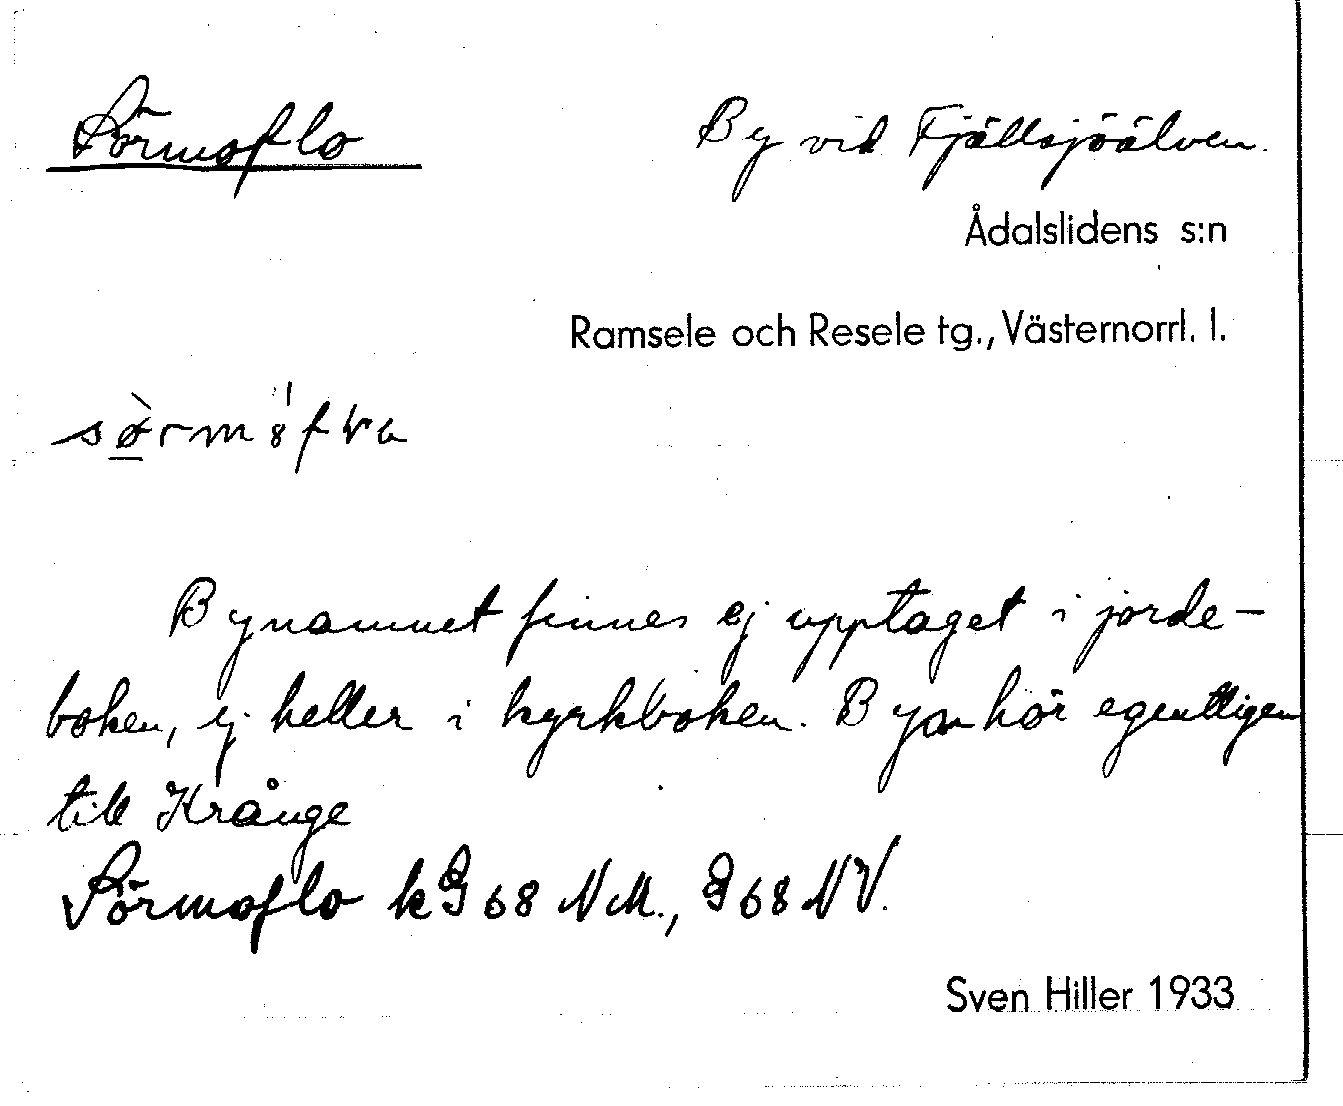 Sörmoflo
By vid Fjällsjöälven.
Ådalslidens s:n
Ramsele och Resele tg., Västernorrl. l.
Bynamnet finnes ej upptaget i jorde-
boken, ej heller i kyrkboken. Byn hör egentligen
till Krånge
Sörmoflo k G 68 N.M., G 68 NV.
Sven Hiller 1933